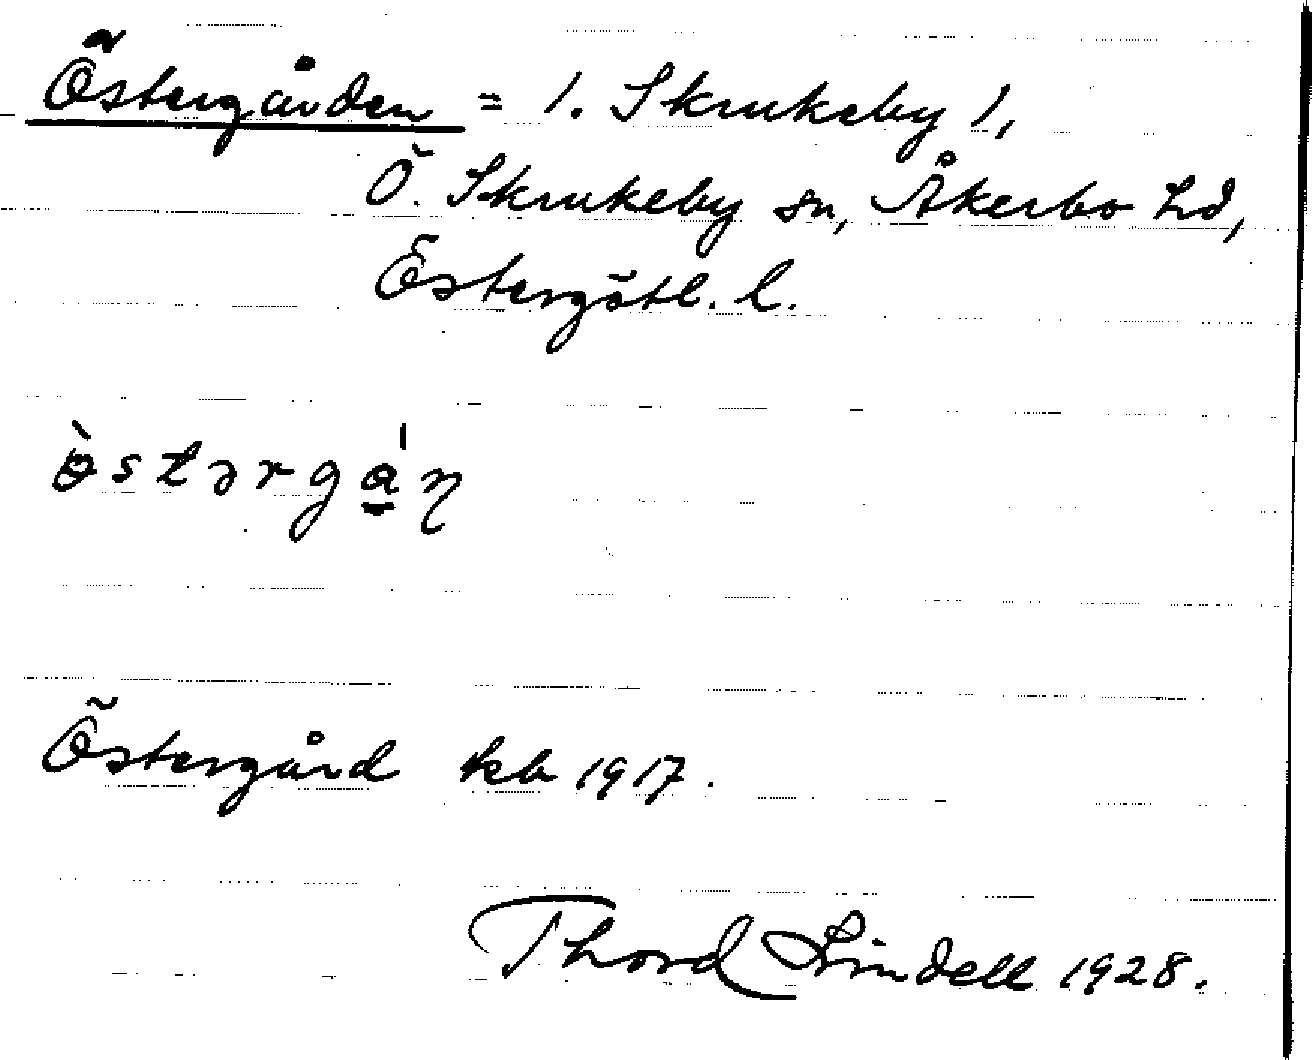 Östergården = 1. Skrukeby 1,
Ö. Skrukeby sn, Åkerbo hd,
Östergötl. l.
ò̵stərgá̠ɳ
Östergård kb 1917.
Thord Lindell 1928.